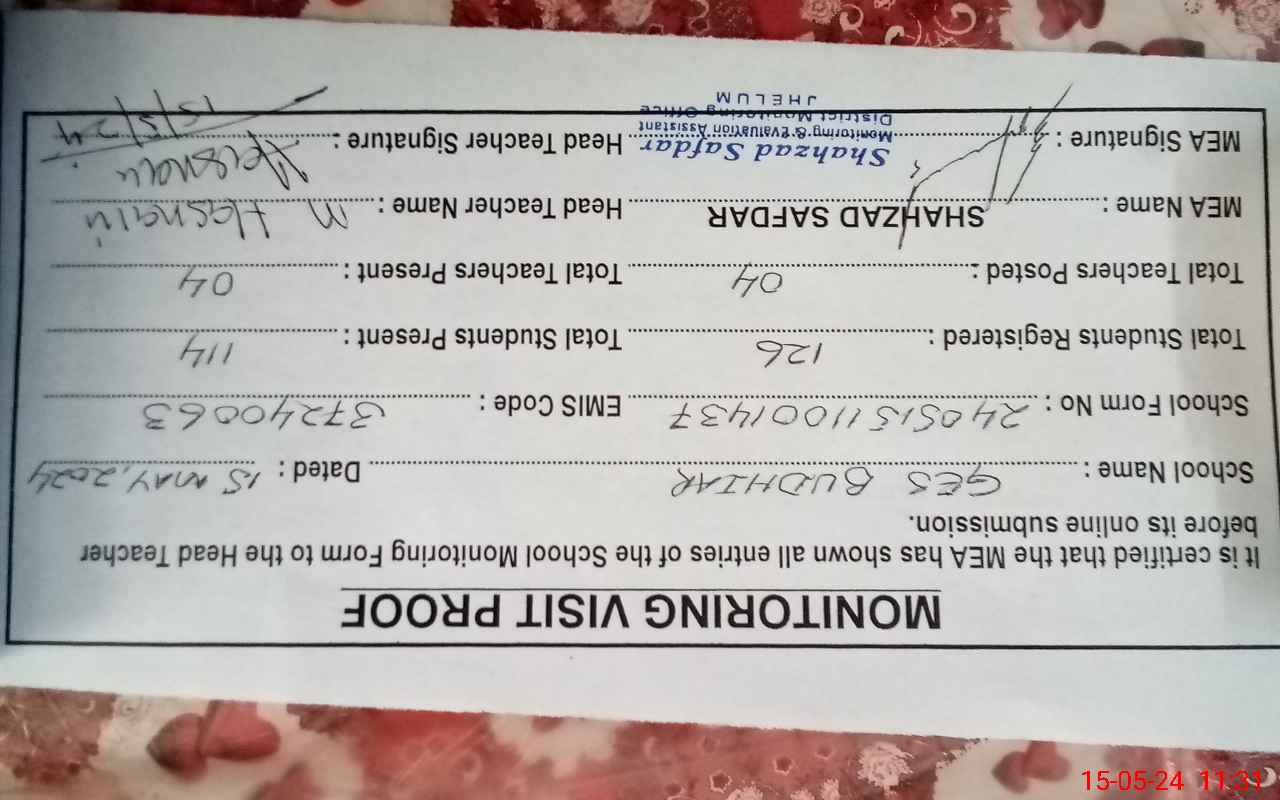 MONITORING VISIT PROOF
It is certified that the MEA has shown all entries of the School Monitoring Form to the Head Teacher
before its online submission.
School Name : GES BUDHIAR Dated : 15 MAY, 2024
School Form No : 24051511001437 EMIS Code : 37240063
Total Students Registered : 126 Total Students Present : 114
Total Teachers Posted : 04 Total Teachers Present : 04
MEA Name : SHAHZAD SAFDAR Head Teacher Name : M Hasnain
MEA Signature : Head Teacher Signature : Hasnain
15/5/24
Shahzad Safdar
Monitoring & Evaluation Assistant
District Monitoring Office
JHELUM
15-05-24 11:31